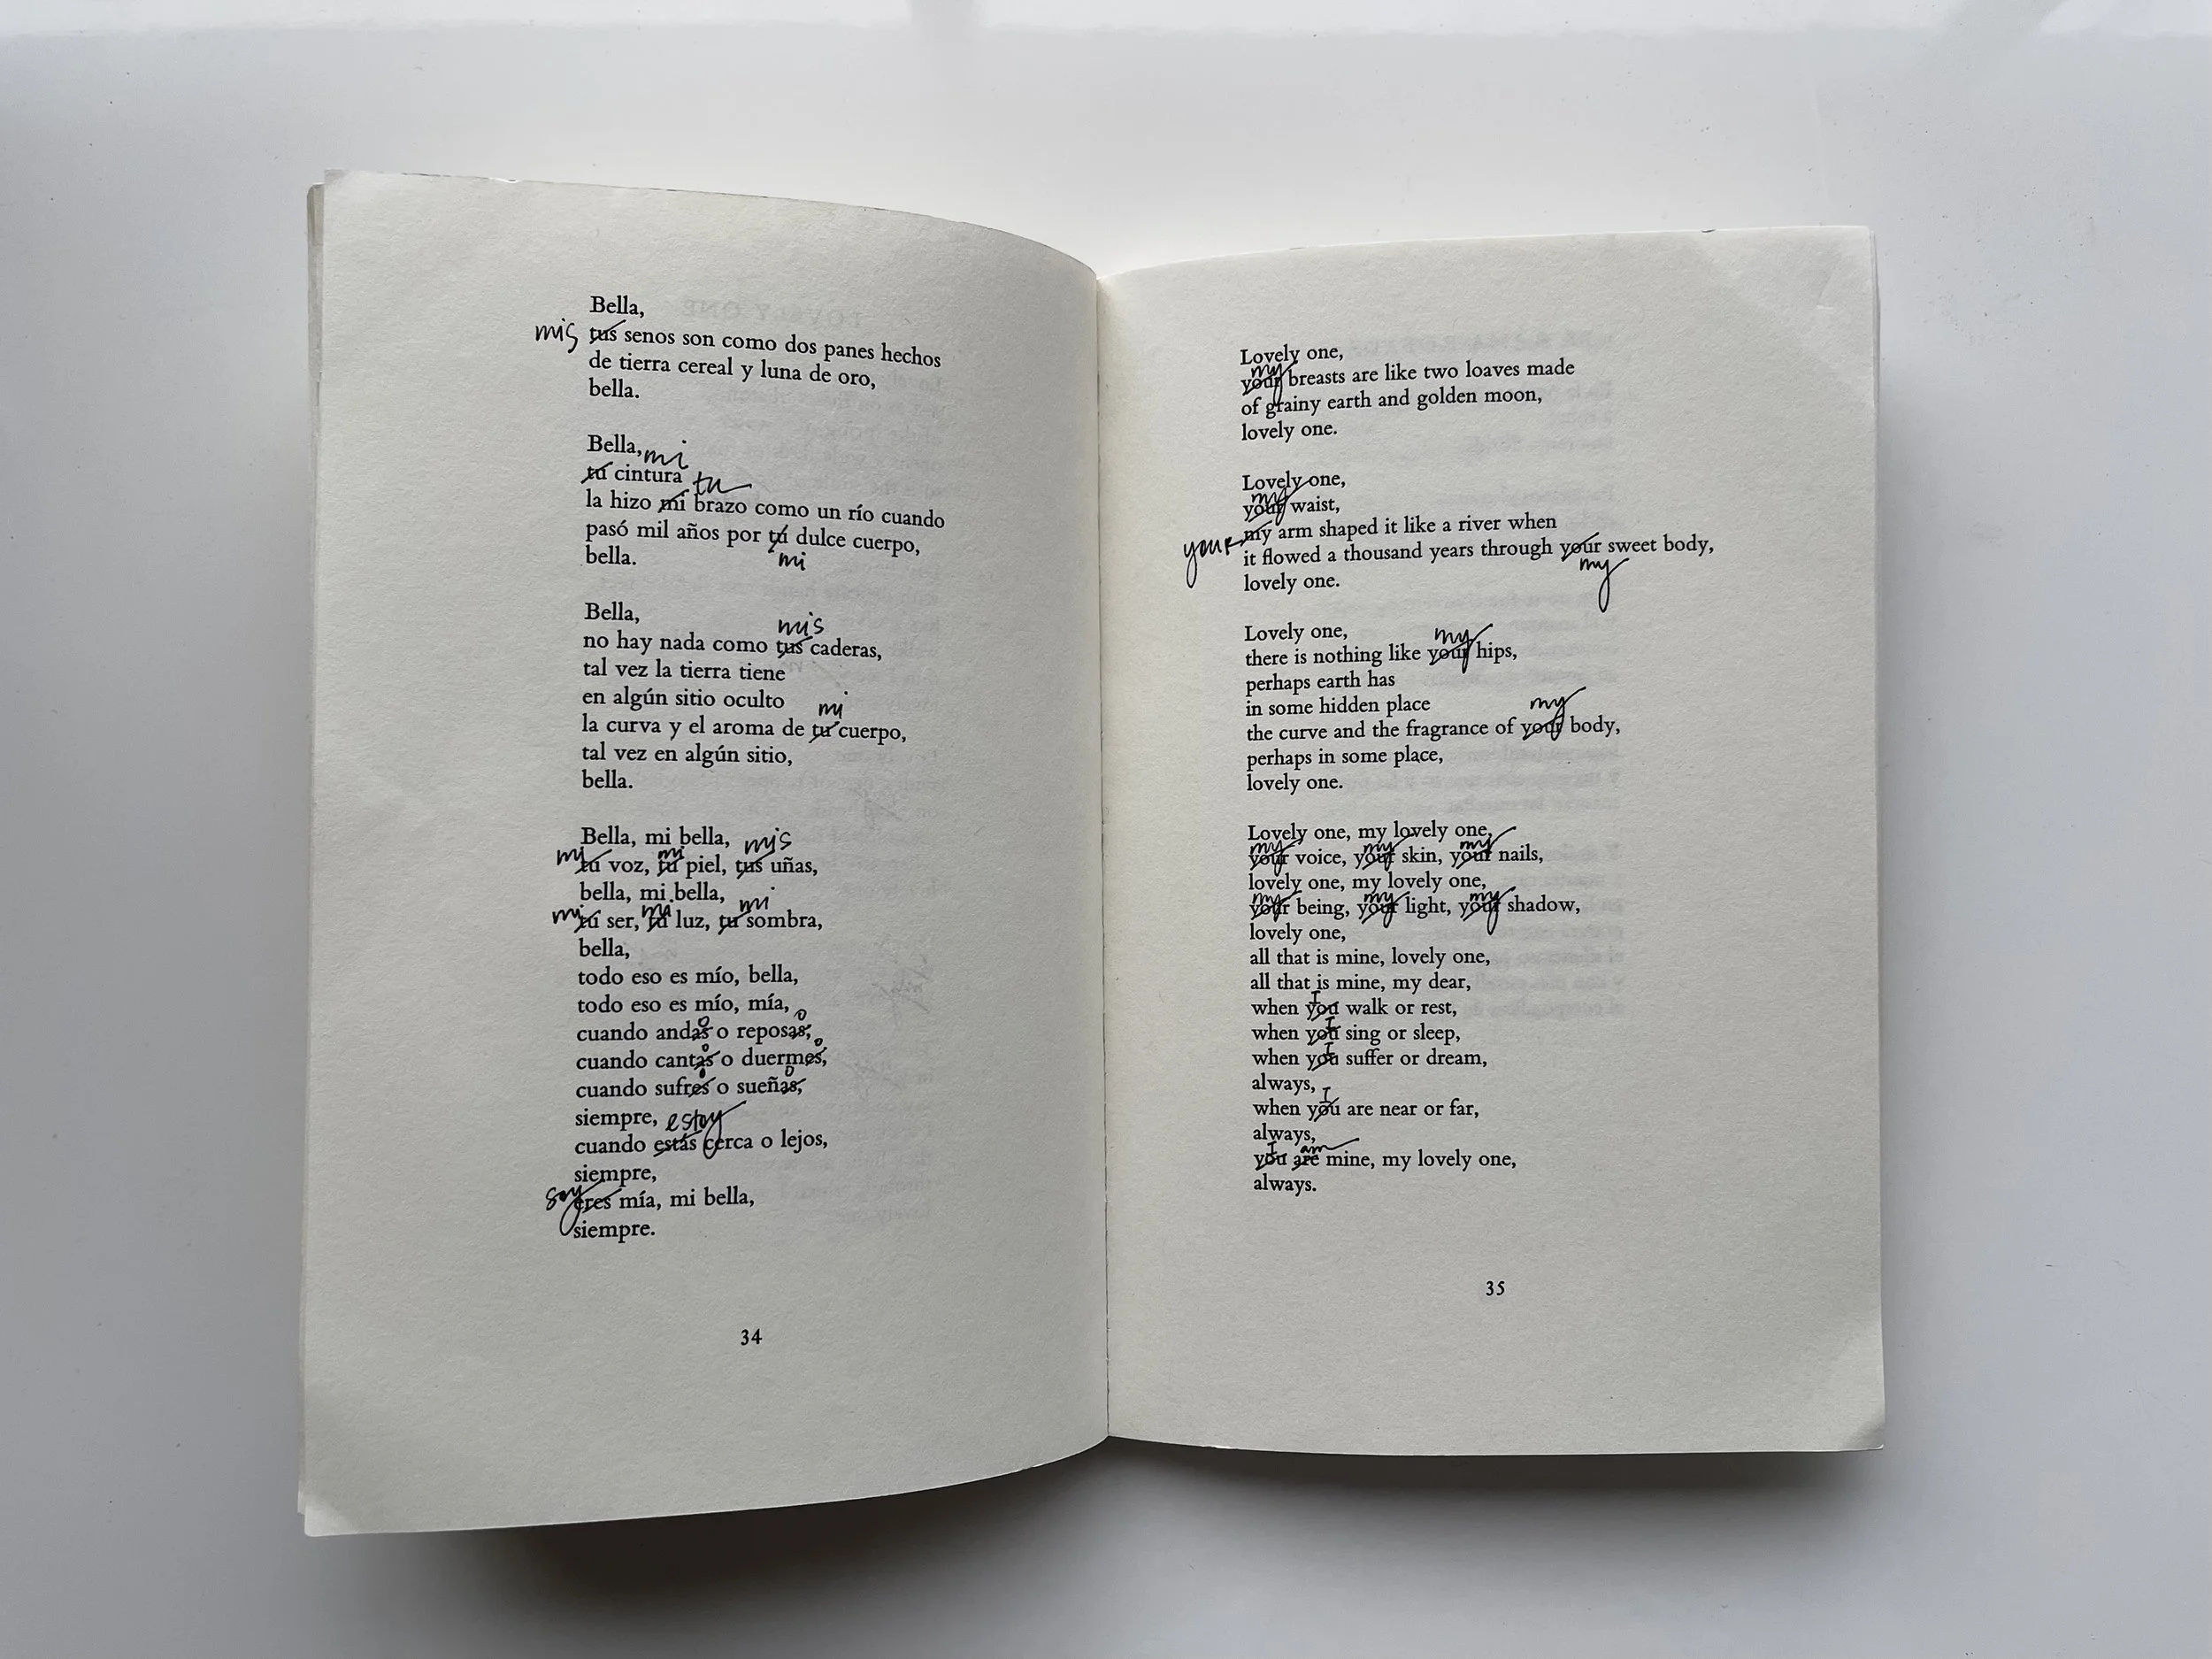 Bella,
mis tus senos son como dos panes hechos
de tierra cereal y luna de oro,
bella.
Bella, mi
tu cintura tu
la hizo mi brazo como un río cuando
pasó mil años por tú dulce cuerpo,
bella. mi
Bella,
mis
no hay nada como tus caderas,
tal vez la tierra tiene
en algún sitio oculto
mi
la curva y el aroma de tu cuerpo,
tal vez en algún sitio,
bella.
Bella, mi bella, mis
mi mi
tu voz, tu piel, tus uñas,
bella, mi bella,
mi mi mi
tu ser, tu luz, tu sombra,
bella,
todo eso es mío, bella,
todo eso es mío, mía,
o o
cuando andas o reposas,
o o
cuando cantas o duermes,
o o
cuando sufres o sueñas,
siempre, estoy
cuando estás cerca o lejos,
siempre,
soy eres mía, mi bella,
siempre.
34
Lovely one,
my
your breasts are like two loaves made
of grainy earth and golden moon,
lovely one.
Lovely one,
my
your waist,
your my arm shaped it like a river when
it flowed a thousand years through your sweet body,
my
lovely one.
Lovely one,
my
there is nothing like your hips,
perhaps earth has
in some hidden place
my
the curve and the fragrance of your body,
perhaps in some place,
lovely one.
Lovely one, my lovely one,
my my my
your voice, your skin, your nails,
lovely one, my lovely one,
my my my
your being, your light, your shadow,
lovely one,
all that is mine, lovely one,
all that is mine, my dear,
I
when you walk or rest,
I
when you sing or sleep,
I
when you suffer or dream,
always,
I
when you are near or far,
always,
I am
you are mine, my lovely one,
always.
35